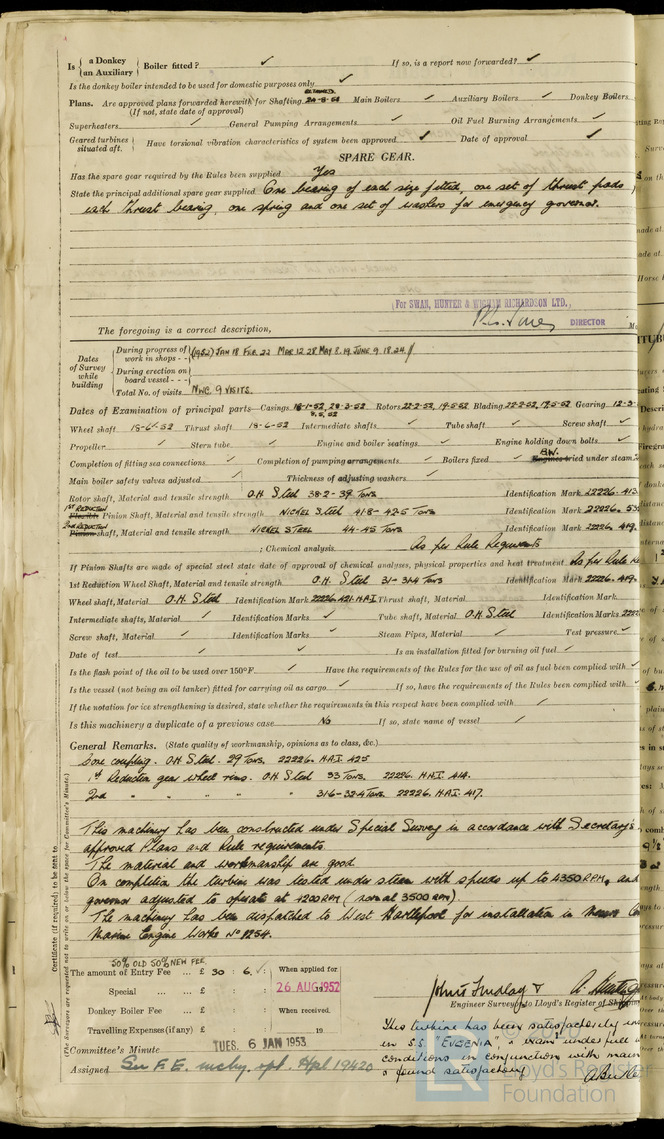 Is { a Donkey / an Auxiliary } Boiler fitted? ✓ If so, is a report now forwarded? ✓
Is the donkey boiler intended to be used for domestic purposes only ✓
Plans. Are approved plans forwarded herewith for Shafting 20-8-51 Main Boilers ✓ Auxiliary Boilers ✓ Donkey Boilers
(If not, state date of approval)
Superheaters ✓ General Pumping Arrangements ✓ Oil Fuel Burning Arrangements ✓
Geared turbines situated aft. } Have torsional vibration characteristics of system been approved ✓ Date of approval ✓
SPARE GEAR.
Has the spare gear required by the Rules been supplied Yes
State the principal additional spare gear supplied One bearing of each size fitted, one set of thrust pads
each thrust bearing, one spring and one set of washers for emergency governor.
(For SWAN, HUNTER & WIGHAM RICHARDSON LTD.,
DIRECTOR
The foregoing is a correct description,
Dates of Survey while building
During progress of work in shops - - (1952) JAN 18 FEB. 22 MAR 12 28 MAY 8. 19 JUNE 9. 18. 24.
During erection on board vessel - - -
Total No. of visits NWC. 9 VISITS.
Dates of Examination of principal parts— Casings 18-1-52, 28-3-52 Rotors 22-2-52, 19-5-52 Blading 22-2-52, 19-5-52 Gearing 12-3-
8.5.52
Wheel shaft 18-6-52 Thrust shaft 18-6-52 Intermediate shafts ✓ Tube shaft ✓ Screw shaft ✓
Propeller ✓ Stern tube ✓ Engine and boiler seatings ✓ Engine holding down bolts ✓
Completion of fitting sea connections ✓ Completion of pumping arrangements ✓ Boilers fixed ✓ Engines tried under steam
Main boiler safety valves adjusted ✓ Thickness of adjusting washers ✓
Rotor shaft, Material and tensile strength O.H. Steel 38·2 - 39 Tons Identification Mark 22226. 413
1ST REDUCTION Flexible Pinion Shaft, Material and tensile strength NICKEL Steel 41·8 - 42·5 Tons Identification Mark 22226.
2ND REDUCTION Pinion shaft, Material and tensile strength NICKEL STEEL 44-45 Tons Identification Mark 22226. 419.
; Chemical analysis As per Rule Requirements
If Pinion Shafts are made of special steel state date of approval of chemical analyses, physical properties and heat treatment As per Rule Re
1st Reduction Wheel Shaft, Material and tensile strength O.H. Steel 31 - 31·4 Tons Identification Mark 22226. 419.
Wheel shaft, Material O.H. Steel Identification Mark 22226. 421. H.A.I. Thrust shaft, Material Identification Mark
Intermediate shafts, Material ✓ Identification Marks ✓ Tube shaft, Material O.H. Steel Identification Marks 222
Screw shaft, Material ✓ Identification Marks ✓ Steam Pipes, Material ✓ Test pressure ✓
Date of test ✓ Is an installation fitted for burning oil fuel ✓
Is the flash point of the oil to be used over 150°F. ✓ Have the requirements of the Rules for the use of oil as fuel been complied with ✓
Is the vessel (not being an oil tanker) fitted for carrying oil as cargo ✓ If so, have the requirements of the Rules been complied with ✓
If the notation for ice strengthening is desired, state whether the requirements in this respect have been complied with ✓
Is this machinery a duplicate of a previous case No If so, state name of vessel ✓
General Remarks. (State quality of workmanship, opinions as to class, &c.)
coupling. O.H. Steel. 29 Tons. 22226. H.A.I. 425
1st Reduction gear wheel rims. O.H. Steel 33 Tons. 22226. H.A.I. 414.
2nd " " " " 31·6-32·4 Tons. 22226. H.A.I. 417.
This machinery has been constructed under Special Survey in accordance with Secretary's
approved Plans and Rule requirements.
The material and workmanship are good.
On completion the turbine was tested under steam with speeds up to 4350 RPM, and
governor adjusted to operate at 4200 RPM (normal 3500 RPM).
The machinery has been dispatched to West Hartlepool for installation in
Marine Engine Works No
50% OLD 50% NEW FEE.
The amount of Entry Fee ... £ 30 : 6 : When applied for
Special ... £ : : 26 AUG 1952
Donkey Boiler Fee ... £ : : When received,
Travelling Expenses (if any) £ : : 19
John Findlay &
Engineer Surveyor to Lloyd's Register of Shipping
Committee's Minute TUES. 6 JAN 1953
Assigned See F.E. mchy. rpt. Hpl 19420
This turbine has been satisfactorily
in S.S. "EUGENIA", & tried under full
conditions in conjunction with main
& found satisfactory.
Certificate (if required) to be sent to
(The Surveyors are requested not to write on or below the space for Committee's Minute.)
Lloyd's Register
Foundation